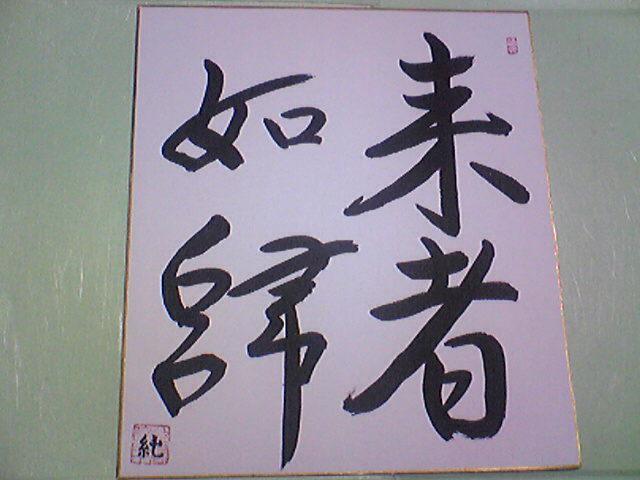 来者
如歸
純